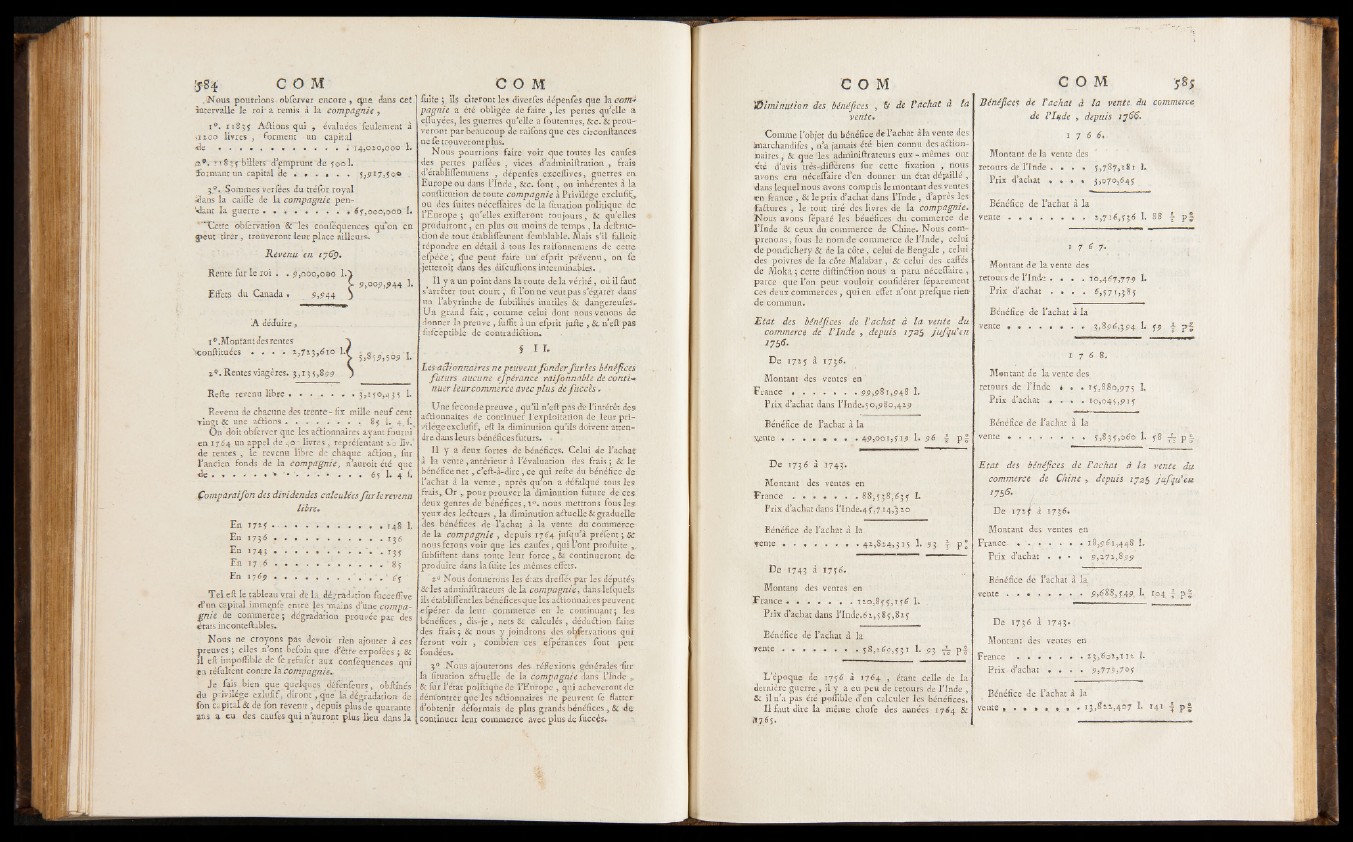 584 COM
Nous pourrions observer encore, que dans cet
intervalle le roi a remis à la compagnie,
1°. 11835 Actions qui, évaluées seulement à
1200 livres, forment un capital
de . . . . . . . . . . . 14,020,000 l.
2°. 11835 billets d'emprunt de 500 l.
formant un capital de . . . . . . 5,917,500
3°. Sommes versées du trésor royal
dans la caisse de la compagnie pen-
dant la guerre . . . . . . . . 65,000,000 l.
Cette observation & les conséquences qu'on en
peut tirer, trouveront leur place ailleurs.
Revenu en 1769.
Rente sur le roi . . 9,000,000 l.
Effets du Canada . 9,944
9,009,944 l.
A déduire,
1°. Montant des rentes
constituées . . . . 2,723,610 l.
2°. Rentes viagères. 3,135,899
5,859,509 l.
Reste revenu libre . . . . . . . 3,150,435 l.
Revenu de chacune des trente-six mille neuf cent
vingt & une actions . . . . . . . . 85 l. 4 s.
On doit observer que les actionnaires ayant fourni
en 1764 un appel de 40 livres, représentant 20 liv.
de rentes, le revenu libre de chaque action, sur
l'ancien fonds de la compagnie, n'auroit été que
de . . . . . . . . . . . . . . . 65 l. 4 s.
Comparaison des dividendes calculées sur le revenu
libre.
En 1725 . . . . . . . . . . . 148 l.
En 1736 . . . . . . . . . . . 136
En 1743 . . . . . . . . . . . 135
En 17 6 . . . . . . . . . . . 85
En 1769 . . . . . . . . . . . 65
Tel est le tableau vrai de la dégradation successive
d'un capital immense entre les mains d'une compa-
gnie de commerce; dégradation prouvée par des
états incontestables.
Nous ne croyons pas devoir rien ajouter à ces
preuves; elles n'ont besoin que d'être exposées; &
il est impossible de se refuser aux conséquences qui
en résultent contre la compagnie.
Je sais bien que quelques défenseurs, obstinés
du privilège exlusif, diront, que la dégradation de
son capital & de son revenu, depuis plus de quarante
ans a eu des causes qui n'auront plus lieu dans la
COM
suite; ils citeront les diverses dépenses que la com-
pagnie a été obligée de faire, les pertes qu'elle a
essuyées, les guerres qu'elle a soutenues, &c. & prou-
veront par beaucoup de raisons que ces circonstances
ne se trouveront plus.
Nous pourrions faire voir que toutes les causes
des pertes passées, vices d'administration, frais
d'établissemens, dépenses excessives, guerres en
Europe ou dans l'Inde, &c. sont, ou inhérentes à la
constitution de toute compagnie à Privilège exclusif,
ou des suites nécessaires de la situation politique de
l'Europe; qu'elles existeront toujours, & qu'elles
produiront, en plus ou moins de temps, la destruc-
tion de tout établissement semblable. Mais s'il falloit
répondre en détail à tous les raisonnemens de cette
espèce, que peut faire un esprit prévenu, on se
jetteroit dans des discussions interminables.
Il y a un point dans la route de la vérité, où il faut
s'arrêter tout court, si l'on ne veut pas s'égarer dans
un labyrinthe de subtilités inutiles & dangereuses.
Un grand fait, comme celui dont nous venons de
donner la preuve, suffit à un esprit juste, & n'est pas
susceptible de contradiction.
§ II.
Les actionnaires ne peuvent fonder sur les bénéfices
futurs aucune espérance raisonnable de conti-
nuer leur commerce avec plus de succès.
Une seconde preuve, qu'il n'est pas de l'intérêt des
actionnaires de continuer l'exploitation de leur pri-
vilège exclusif, est la diminution qu'ils doivent atten-
dre dans leurs bénéfices futurs.
Il y a deux sortes de bénéfices. Celui de l'achat
à la vente, antérieur à l'évaluation des frais; & le
bénéfice net, c'est-à-dire, ce qui reste du bénéfice de
l'achat à la vente, après qu'on a défalqué tous les
frais, Or, pour prouver la diminution future de ces
deux genres de bénéfices, 1°. nous mettrons sous les
yeux des lecteurs, la diminution actuelle & graduelle
des bénéfices de l'achat à la vente du commerce
de la compagnie, depuis 1764 jusqu'à présent; &
nous ferons voir que les causes, qui l'ont produite,
subsistent dans toute leur force, & continueront de
produire dans la suite les mêmes effets.
2° Nous donnerons les états dressés par les députés
& les administrateurs de la compagnie, dans lesquels
ils établissent les bénéfices que les actionnaires peuvent
espérer de leur commerce en le continuant; les
bénéfices, dis-je, nets & calculés, déduction faite
des frais; & nous y joindrons des observations qui
feront voir, combien ces espérances sont peu
fondées.
3° Nous ajouterons des réflexions générales sur
la situation actuelle de la compagnie dans l'Inde,
& sur l'état politique de l'Europe, qui acheveront de
démontrer que les actionnaires ne peuvent se flatter
d'obtenir désormais de plus grands bénéfices, & de
continuer leur commerce avec plus de succès.
COM
Diminution des bénéfices, & de l'achat à la
vente.
Comme l'objet du bénéfice de l'achat à la vente des
marchandises, n'a jamais été bien connu des action-
naires, & que les administrateurs eux-mêmes ont
été d'avis très-différens sur cette fixation, nous
avons cru nécessaire d'en donner un état détaillé,
dans lequel nous avons compris le montant des ventes
en france, & le prix d'achat dans l'Inde, d'après les
factures, le tout tiré des livres de la compagnie.
Nous avons séparé les bénéfices du commerce de
l'Inde & ceux du commerce de Chine. Nous com-
prenons, sous le nom de commerce de l'Inde, celui
de pondichery & de la côte, celui de Bengale, celui
des poivres de la côte Malabar, & celui des caffés
de Moka; cette distinction nous a paru nécessaire,
parce que l'on peut vouloir considérer séparement
ces deux commerces, qui en effet n'ont presque rien
de commun.
Etat des bénéfices de l'achat à la vente du
commerce de l'Inde, depuis 1725 jusqu'en
1756.
De 1725 à 1736.
Montant des ventes en
France . . . . . . . 99,981,948 l.
Prix d'achat dans l'Inde. 50,980,429
Bénéfice de l'achat à la
vente . . . . . . . . 49,001,519 l. 96 p°
De 1736 à 1743.
Montant des ventes en
France . . . . . . . 88,538,635 l.
Prix d'achat dans l'Inde. 45,714,320
Bénéfice de l'achat à la
vente . . . . . . . . 42,824,315 l. 93 p°
De 1743 à 1756.
Montant des ventes en
France . . . . . . . 120,855,156 l.
Prix d'achat dans l'Inde. 62,585,825
Bénéfice de l'achat à la
vente . . . . . . . . 58,269,531 l. 93 p°
L'époque de 1756 à 1764, étant celle de la
dernière guerre, il y a eu peu de retours de l'Inde,
& il n'a pas été possible d'en calculer les bénéfices.
Il faut dire la même chose des années 1764 &
1765.
COM 585
Bénéfices de l'achat à la vente du commerce
de l'Inde, depuis 1766.
1766.
Montant de la vente des
retours de l'Inde . . . . 5,787,181 l.
Prix d'achat . . . . 3,070,645
Bénéfice de l'achat à la
vente . . . . . . . . 2,716,536 l. 88 p°
1767.
Montant de la vente des
retours de l'Inde . . . . 10,467,779 l.
Prix d'achat . . . . 6,571,385
Bénéfice de l'achat à la
vente . . . . . . . . 3,896,394 l. 59 p°
1768.
Montant de la vente des
retours de l'Inde . . . 15,880,975 l.
Prix d'achat . . . . 10,045,915
Bénéfice de l'achat à la
vente . . . . . . . . 5,835,060 l. 58 p°
Etat des bénéfices de l'achat à la vente du
commerce de Chine, depuis 1725 jusqu'en
1756.
De 1725 à 1736.
Montant des ventes en
France . . . . . . . 18,961,448 l.
Prix d'achat . . . . 9,272,899
Bénéfice de l'achat à la
vente . . . . . . . . 9,688,549 l. 104 p°
De 1736 à 1743.
Montant des ventes en
France . . . . . . . 23,601,112 l.
Prix d'achat . . . . 9,778,705
Bénéfice de l'achat à la
vente . . . . . . . . 13,822,407 l. 141 p°